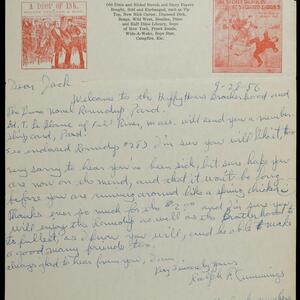 A DROP OF INK.
Old Dime and Nickel Novels and Story Papers
Bought, Sold and Exchanged, such as Tip
Top, New Nick Carter, Diamond Dick,
Bowery, Wild West, Beadles, Dime
and Half Dime Library, Boys
of New York, Frank Reade,
Wide-A-Wake, Boys Star,
Campfire, Etc.
Dear Jack 9-28-56
Welcome to the Happy Hours Brotherhood and
the Dime Novel Roundup Pard —
Ed. T. Le Blanc of Fall River, Mass. will send you a number
ship card, Pard!
See enclosed Roundup #283 I'm sure you will like it too
Very sorry to hear you've been sick, but sure hope you
are now on the mend, and that it won't be long
before you are running around like a spring chicken
Thanks ever so much for the $2.00 and I'm sure you
will enjoy the Roundup as well as the Brotherhood to
its fullest, as I know you will, and be able to make
a good many friends too.
always glad to hear from you,
Very Sincerely Yours
Ralph F. Cummings